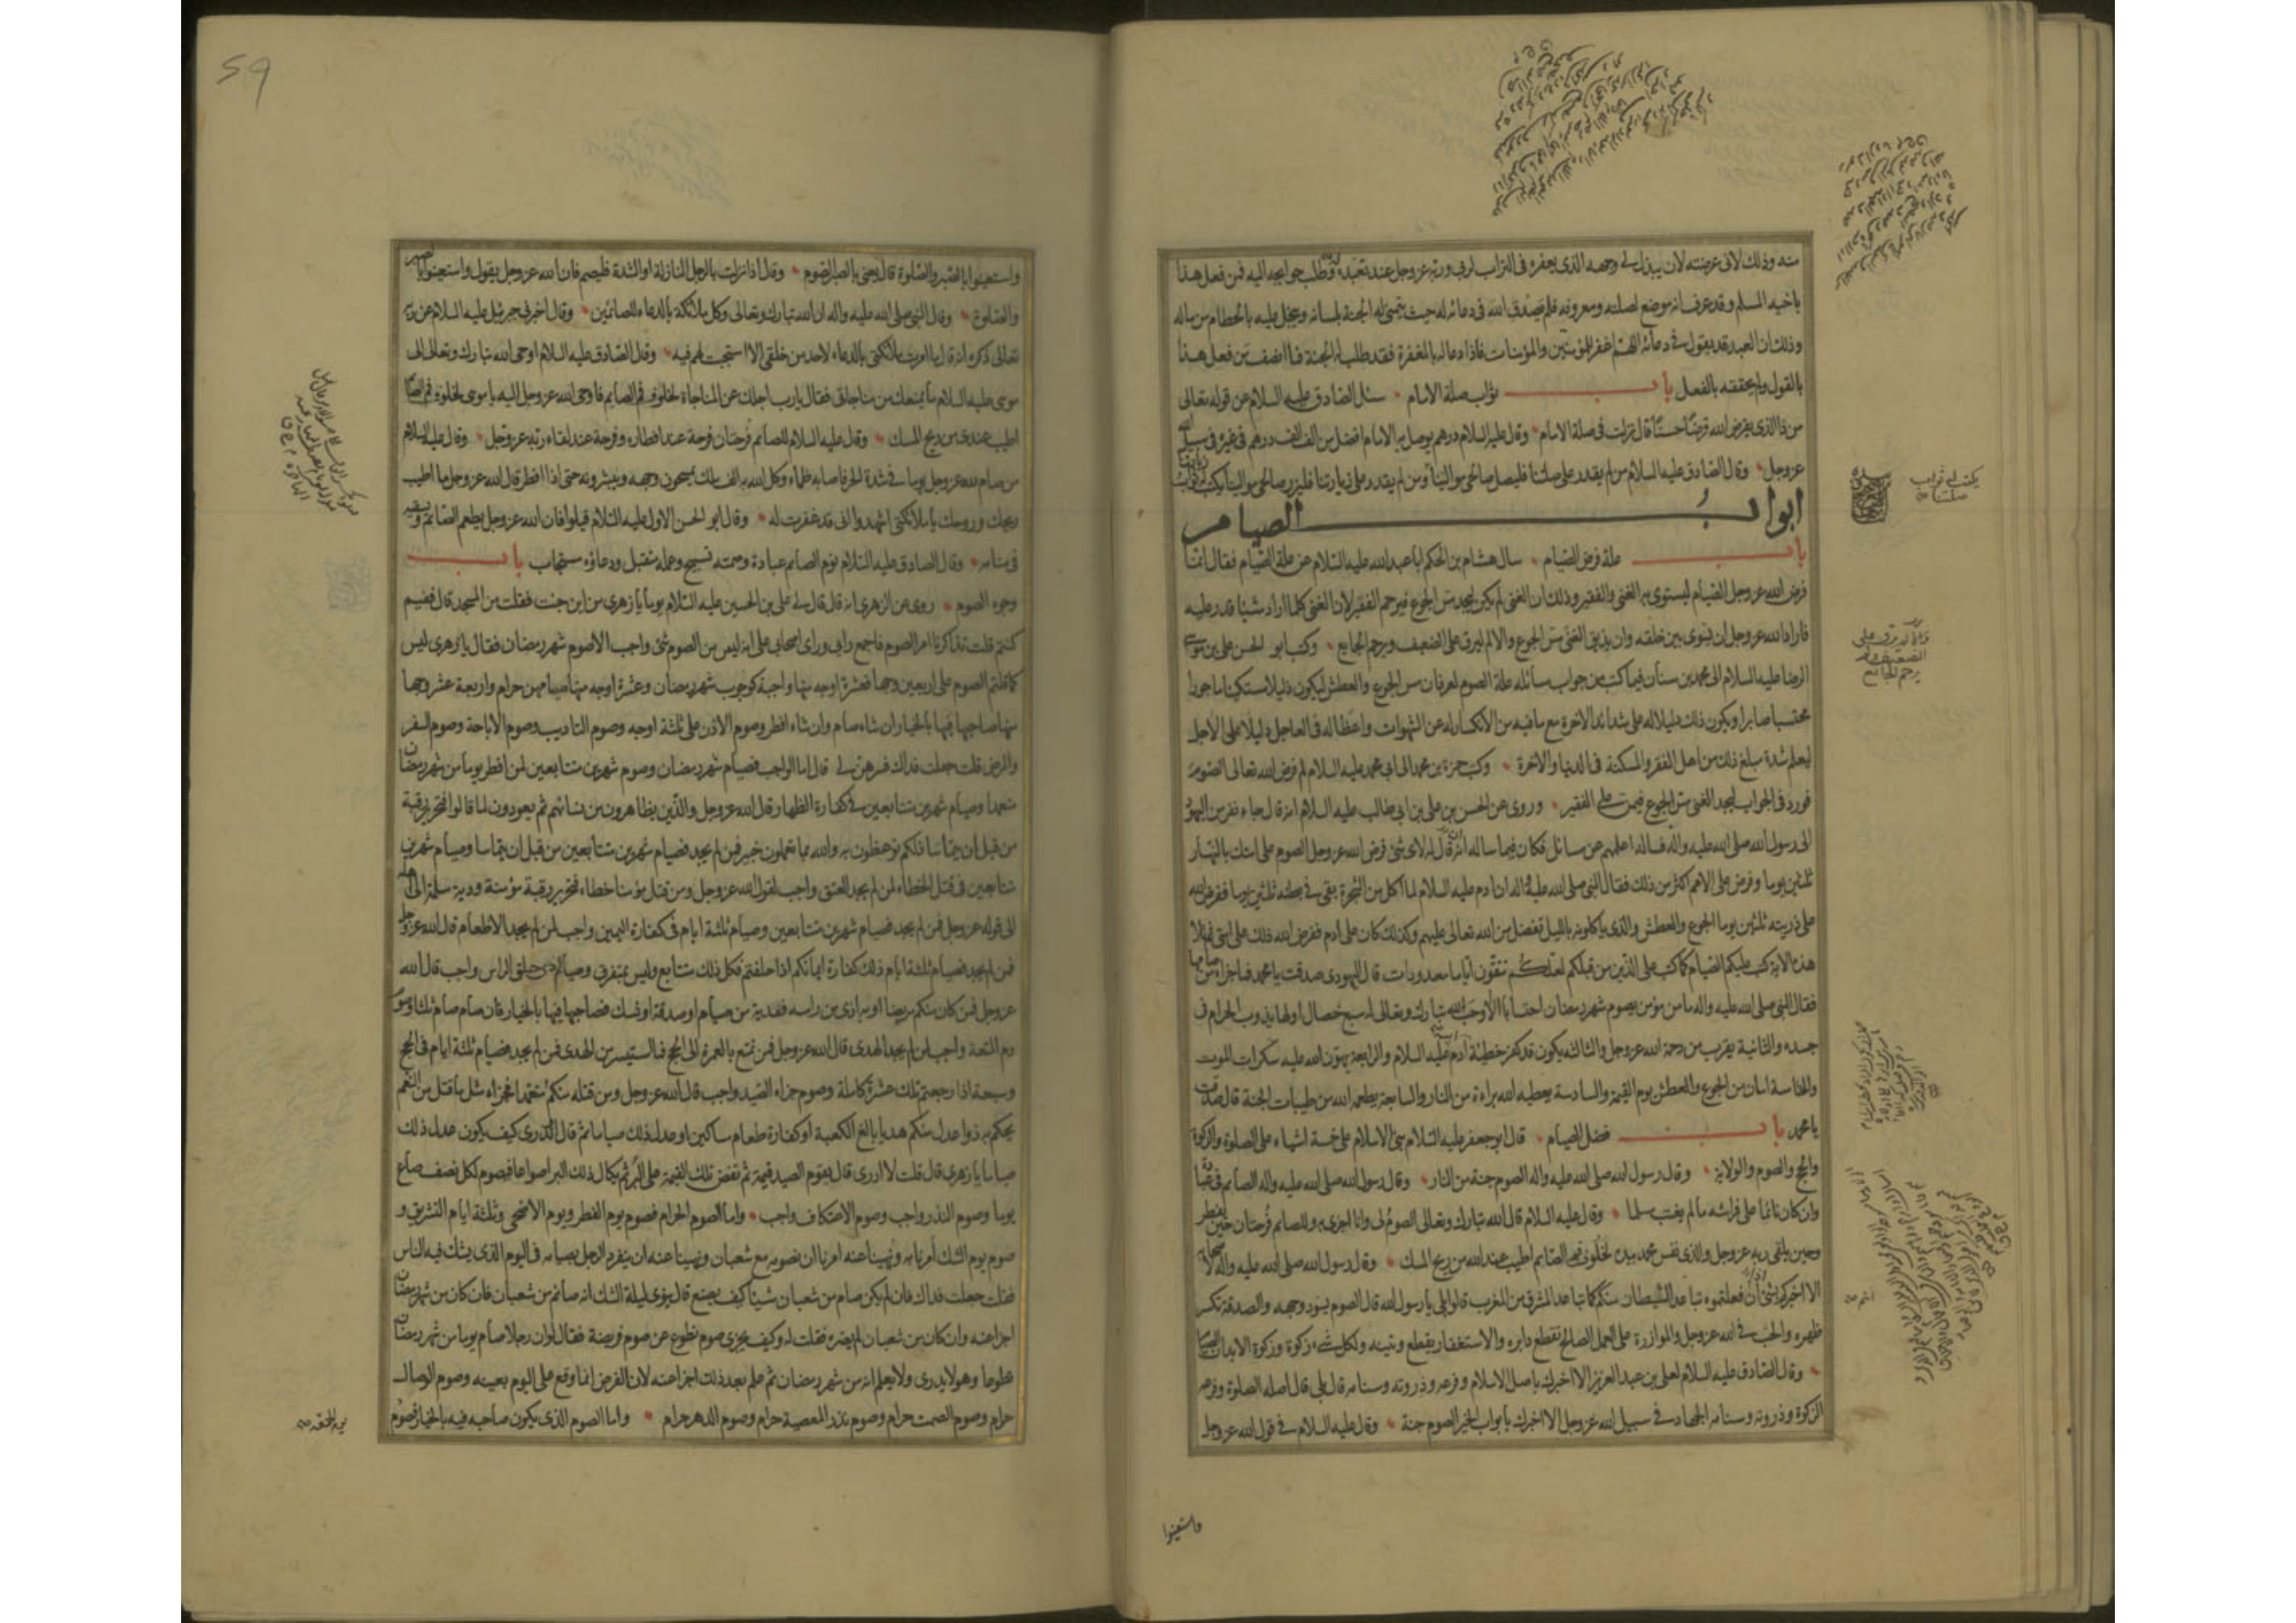 منه وذلك لانى عرضته لان يبذل لي وجهه الذى يعفره فى التراب لربى وربه عز وجل عند تعبده له وطلب حوايجه اليه فمن فعل هذا
باخيه المسلم وقد عرف انه موضع لصلته ومعروفه فلم يصدق الله فى دعائه له حيث يتمنى له الجنة بلسانه ويبخل عليه بالحطام من ماله
وذلك ان العبد قد يقول فى دعائه اللهم اغفر للمؤمنين والمؤمنات فاذا دعا له بالمغفرة فقد طلب له الجنة فما انصف من فعل هذا
بالقول ولم يحققه بالفعل باب ثواب صلة الامام سئل الصادق عليه السلام عن قوله تعالى
من ذا الذى يقرض الله قرضا حسنا قال نزلت فى صلة الامام وقال عليه السلام درهم يوصل به الامام افضل من الف الف درهم فى غيره فى سبيل الله
عز وجل وقال الصادق عليه السلام من لم يقدر على صلتنا فليصل صالحى موالينا ومن لم يقدر على زيارتنا فليزر صالحى موالينا يكتب له ثواب زيارتنا
ابواب الصيام
باب علة فرض الصيام سال هشام بن الحكم ابا عبد الله عليه السلام عن علة الصيام فقال انما
فرض الله عز وجل الصيام ليستوى به الغنى والفقير وذلك ان الغنى لم يكن ليجد مس الجوع فيرحم الفقير لان الغنى كلما اراد شيئا قدر عليه
فاراد الله عز وجل ان يسوى بين خلقه وان يذيق الغنى مس الجوع والالم ليرق على الضعيف ويرحم الجايع وكتب ابو الحسن على بن موسى
الرضا عليه السلام الى محمد بن سنان فيما كتب من جواب مسائله علة الصوم لعرفان مس الجوع والعطش ليكون ذليلا مستكينا ماجورا
محتسبا صابرا ويكون ذلك دليلا له على شدائد الاخرة مع ما فيه من الانكسار له عن الشهوات واعظا له فى العاجل دليلا على الاجل
ليعلم شدة مبلغ ذلك من اهل الفقر والمسكنة فى الدنيا والاخرة وكتب حمزة بن محمد الى ابى محمد عليه السلام لم فرض الله تعالى الصوم
فورد فى الجواب ليجد الغنى مس الجوع فيمن على الفقير وروى عن الحسن بن على بن ابى طالب عليه السلام انه قال جاء نفر من اليهود
الى رسول الله صلى الله عليه واله فساله اعلمهم عن مسائل فكان فيما ساله انه قال له لاى شئ فرض الله عز وجل الصوم على امتك بالنهار
ثلثين يوما وفرض على الامم اكثر من ذلك فقال النبى صلى الله عليه واله ان ادم عليه السلام لما اكل من الشجرة بقى فى بطنه ثلثين يوما ففرض الله
على ذريته ثلثين يوما الجوع والعطش والذى ياكلونه بالليل تفضل من الله تعالى عليهم وكذلك كان على ادم ففرض الله ذلك على امتى ثم تلا
هذه الاية كتب عليكم الصيام كما كتب على الذين من قبلكم لعلكم تتقون اياما معدودات قال اليهودى صدقت يا محمد فما جزاء من صامها
فقال النبى صلى الله عليه واله ما من مؤمن يصوم شهر رمضان احتسابا الا اوجب الله تبارك وتعالى له سبع خصال اولها يذوب الحرام فى
جسده والثانية يقرب من رحمة الله عز وجل والثالثة يكون قد كفر خطيئة ابيه ادم عليه السلام والرابعة يهون الله عليه سكرات الموت
والخامسة امان من الجوع والعطش يوم القيمة والسادسة يعطيه الله براءة من النار والسابعة يطعمه الله من طيبات الجنة قال صدقت
يا محمد باب فضل الصيام قال ابو جعفر عليه السلام بنى الاسلام على خمسة اشياء على الصلوة والزكوة
والحج والصوم والولاية وقال رسول الله صلى الله عليه واله الصوم جنة من النار وقال رسول الله صلى الله عليه واله الصائم فى عبادة
وان كان نائما على فراشه ما لم يغتب مسلما وقال عليه السلام قال الله تبارك وتعالى الصوم لى وانا اجزى به وللصائم فرحتان حين يفطر
وحين يلقى ربه عز وجل والذى نفس محمد بيده لخلوف فم الصائم اطيب عند الله من ريح المسك وقال رسول الله صلى الله عليه واله لاصحابه
الا اخبركم بشئ ان فعلتموه تباعد الشيطان منكم كما تباعد المشرق من المغرب قالوا بلى يا رسول الله قال الصوم يسود وجهه والصدقة تكسر
ظهره والحب فى الله عز وجل والموازرة على العمل الصالح تقطع دابره والاستغفار يقطع وتينه ولكل شىء زكوة وزكوة الابدان الصيام
وقال الصادق عليه السلام لعلى بن عبد العزيز الا اخبرك باصل الاسلام وفرعه وذروته وسنامه قال بلى قال اصله الصلوة وفرعه
الزكوة وذروته وسنامه الجهاد فى سبيل الله عز وجل الا اخبرك بابواب الخير الصوم جنة وقال عليه السلام فى قول الله عز وجل
يكتب له ثواب
صلتنا
واستعينوا
59
واستعينوا بالصبر والصلوة قال يعنى بالصبر الصوم وقال اذا نزلت بالرجل النازلة او الشدة فليصم فان الله عز وجل يقول واستعينوا بالصبر
والصلوة وقال النبى صلى الله عليه واله ان الله تبارك وتعالى وكل ملائكة بالدعاء للصائمين وقال اخبرنى جبرئيل عليه السلام عن ربه
تعالى ذكره انه قال ما امرت ملائكتى بالدعاء لاحد من خلقى الا استجبت لهم فيه وقال الصادق عليه السلام اوحى الله تبارك وتعالى الى
موسى عليه السلام ما يمنعك من مناجاتى فقال يا رب اجلك عن المناجاة لخلوف فم الصايم فاوحى الله عز وجل اليه يا موسى لخلوف فم الصائم
اطيب عندى من ريح المسك وقال عليه السلام للصائم فرحتان فرحة عند افطاره وفرحة عند لقاء ربه عز وجل وقال عليه السلام
من صام لله عز وجل يوما فى شدة الحر فاصابه ظماء وكل الله به الف ملك يمسحون وجهه ويبشرونه حتى اذا افطر قال الله عز وجل ما اطيب
ريحك وروحك يا ملائكتى اشهدوا انى قد غفرت له وقال ابو الحسن الاول عليه السلام قيلوا فان الله عز وجل يطعم الصائم ويسقيه
فى منامه وقال الصادق عليه السلام نوم الصائم عبادة وصمته تسبيح وعمله متقبل ودعاؤه مستجاب باب
وجوه الصوم روى عن الزهرى انه قال قال لى على بن الحسين عليه السلام يوما يا زهرى من اين جئت فقلت من المسجد قال ففيم
كنتم قلت تذاكرنا امر الصوم فاجمع رايى وراى اصحابى على انه ليس من الصوم شئ واجب الا صوم شهر رمضان فقال يا زهرى ليس
كما قلتم الصوم على اربعين وجها فعشرة اوجه منها واجبة كوجوب شهر رمضان وعشرة اوجه منها صيامهن حرام واربعة عشر وجها
منها صاحبها فيها بالخيار ان شاء صام وان شاء افطر وصوم الاذن على ثلثة اوجه وصوم التاديب وصوم الاباحة وصوم السفر
والمرض قلت جعلت فداك فسرهن لى قال اما الواجب فصيام شهر رمضان وصوم شهرين متتابعين لمن افطر يوما من شهر رمضان
متعمدا وصيام شهرين متتابعين فى كفارة الظهار قال الله عز وجل والذين يظاهرون من نسائهم ثم يعودون لما قالوا فتحرير رقبة
من قبل ان يتماسا ذلكم توعظون به والله بما تعملون خبير فمن لم يجد فصيام شهرين متتابعين من قبل ان يتماسا وصيام شهرين
متتابعين فى قتل الخطاء لمن لم يجد العتق واجب لقول الله عز وجل ومن قتل مؤمنا خطاء فتحرير رقبة مؤمنة ودية مسلمة الى اهله
الى قوله عز وجل فمن لم يجد فصيام شهرين متتابعين وصيام ثلثة ايام فى كفارة اليمين واجب لمن لم يجد الاطعام قال الله عز وجل
فمن لم يجد فصيام ثلثة ايام ذلك كفارة ايمانكم اذا حلفتم فكل ذلك متتابع وليس بمتفرق وصيام اذى حلق الراس واجب قال الله
عز وجل فمن كان منكم مريضا او به اذى من راسه ففدية من صيام او صدقة او نسك فصاحبها فيها بالخيار فان صام صام ثلثا وصوم
دم المتعة واجب لمن لم يجد الهدى قال الله عز وجل فمن تمتع بالعمرة الى الحج فما استيسر من الهدى فمن لم يجد فصيام ثلثة ايام فى الحج
وسبعة اذا رجعتم تلك عشرة كاملة وصوم جزاء الصيد واجب قال الله عز وجل ومن قتله منكم متعمدا فجزاء مثل ما قتل من النعم
يحكم به ذوا عدل منكم هديا بالغ الكعبة او كفارة طعام مساكين او عدل ذلك صياما ثم قال اتدرى كيف يكون عدل ذلك
صياما يا زهرى قال قلت لا ادرى قال يقوم الصيد قيمة ثم تفض تلك القيمة على البر ثم يكال ذلك البر اصواعا فيصوم لكل نصف صاع
يوما وصوم النذر واجب وصوم الاعتكاف واجب واما الصوم الحرام فصوم يوم الفطر ويوم الاضحى وثلثة ايام التشريق و
صوم يوم الشك امرنا به ونهينا عنه امرنا ان نصومه مع شعبان ونهينا عنه ان ينفرد الرجل بصيامه فى اليوم الذى يشك فيه الناس
فقلت جعلت فداك فان لم يكن صام من شعبان شيئا كيف يصنع قال ينوى ليلة الشك انه صائم من شعبان فان كان من شهر رمضان
اجزا عنه وان كان من شعبان لم يضره فقلت له وكيف يجزى صوم تطوع عن صوم فريضة فقال لو ان رجلا صام يوما من شهر رمضان
تطوعا وهو لا يدرى ولا يعلم انه من شهر رمضان ثم علم بعد ذلك اجزا عنه لان الفرض انما وقع على اليوم بعينه وصوم الوصال
حرام وصوم الصمت حرام وصوم نذر المعصية حرام وصوم الدهر حرام واما الصوم الذى يكون صاحبه فيه بالخيار فصوم